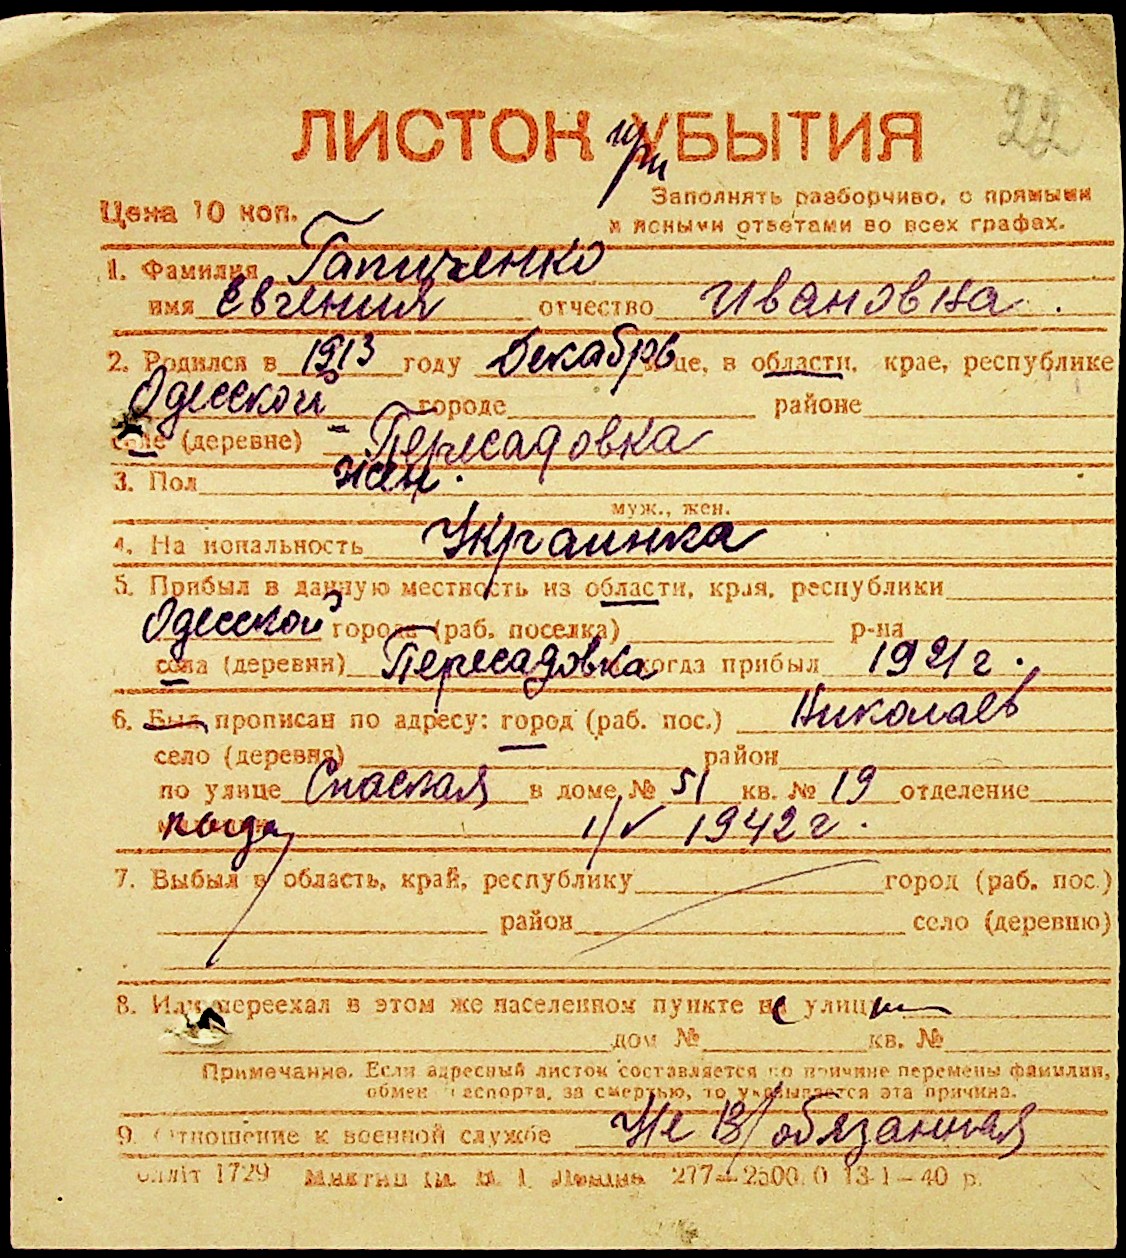 22
ЛИСТОК при УБЫТИЯ
Цена 10 коп.
Заполнять разборчиво, с прямыми
и ясными ответами во всех графах.
1. Фамилия Гапиченко
имя Евгения отчество Ивановна.
2. Родился в 1913 году Декабрь це, в области, крае, республике
Одесской городе районе
селе (деревне) - Пересадовка
3. Пол жен.
муж., жен.
4. Национальность Украинка
5. Прибыл в данную местность из области, края, республики
Одесской города (раб. поселка) р-на
села (деревни) Пересадовка когда прибыл 1921 г.
6. Был прописан по адресу: город (раб. пос.) Николаев
село (деревня) район
по улице Спаская в доме № 51 кв. № 19 отделение
когда 1/V 1942 г.
7. Выбыл в область, край, республику город (раб. пос.)
район село (деревню)
8. Или переехал в этом же населенном пункте с улицы
дом № кв. №
Примечание. Если адресный листок составляется по причине перемены фамилии,
обмен паспорта, за смертью, то указывается эта причина.
9. Отношение к военной службе Не в/обязанная
1729 277—2500.0 13-1—40 р.